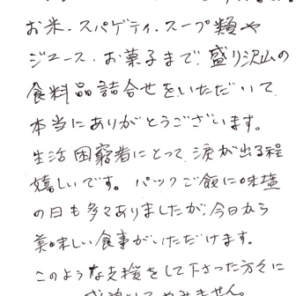 お米・スパゲティ・スープ類や
ジュース・お菓子まで、盛り沢山の
食料品詰合せをいただいて、
本当にありがとうございます。
生活困窮者にとって、涙が出る程
嬉しいです。パックご飯に味塩
の日も多々ありましたが、今日から
美味しい食事がいただけます。
このような支援をして下さった方々に
感謝してやみません